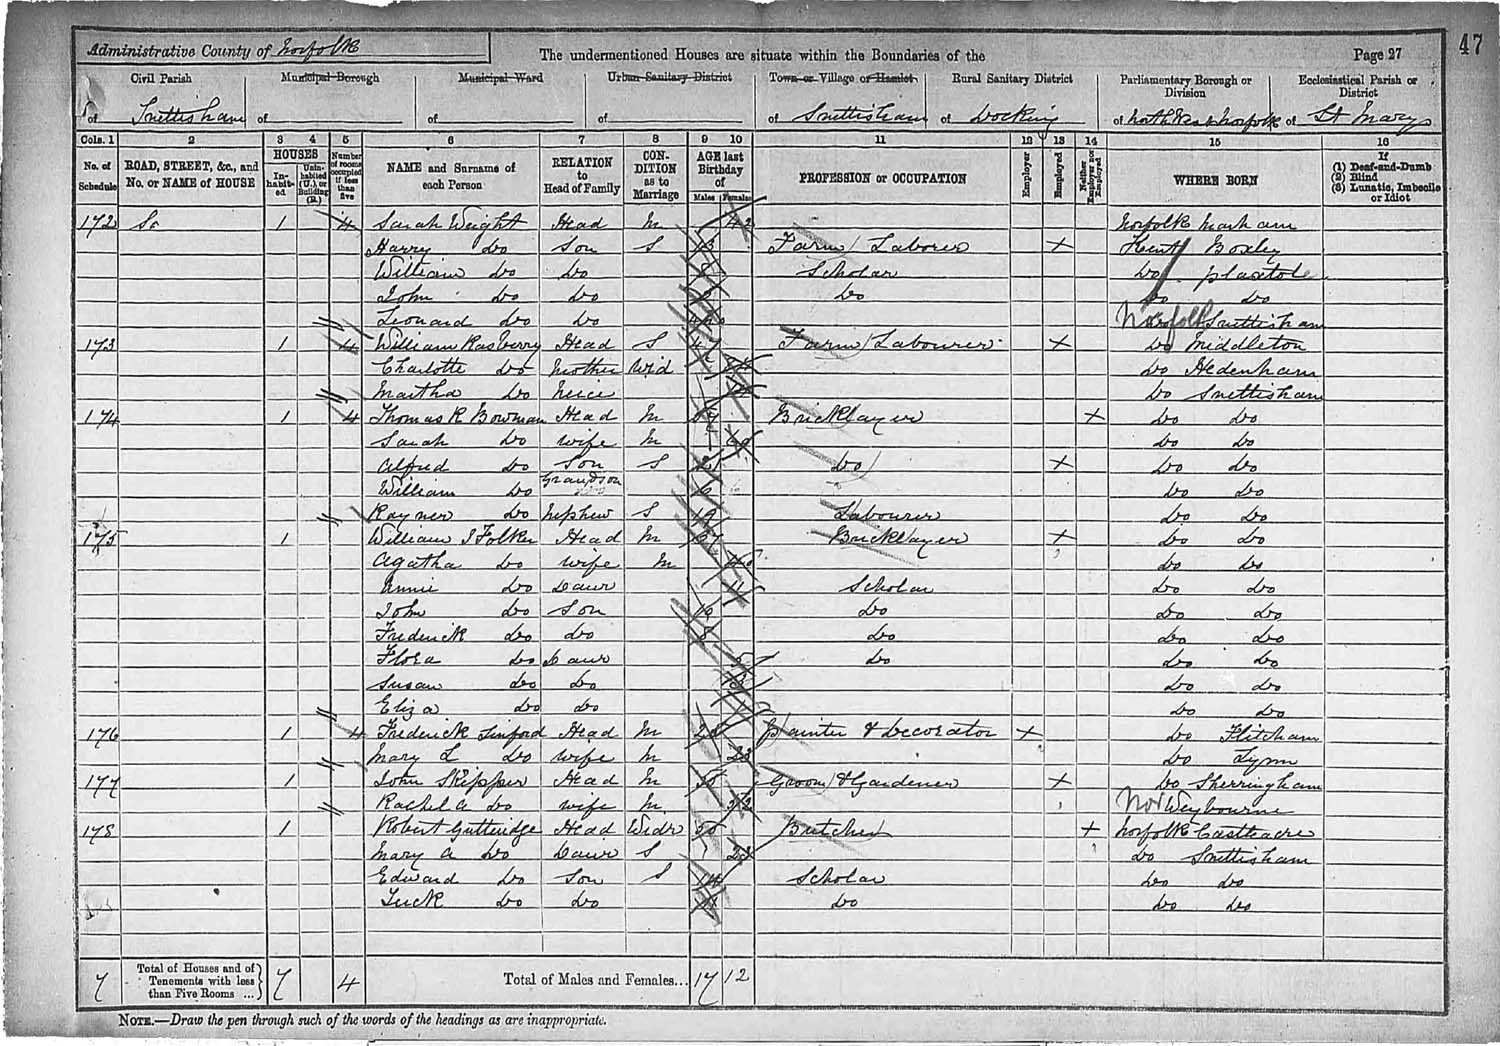 Administrative County of Norfolk
The undermentioned Houses are situate within the Boundaries of the
Page 27
47
Civil Parish Municipal Borough Municipal Ward Urban Sanitary District Town or Village or Hamlet Rural Sanitary District Parliamentary Borough or Division Ecclesiastical Parish or District
of Snettisham of of of of Snettisham of Docking of North West Norfolk of St Marys
Cols. 1 2 3 4 5 6 7 8 9 10 11 12 13 14 15 16
No. of Schedule ROAD, STREET, &c., and No. or NAME of HOUSE HOUSES Inhabited Uninhabited (U.), or Building (B.) Number of rooms occupied if less than five NAME and Surname of each Person RELATION to Head of Family CONDITION as to Marriage AGE last Birthday of Males Females PROFESSION or OCCUPATION Employer Employed Neither Employer nor Employed WHERE BORN If (1) Deaf-and-Dumb (2) Blind (3) Lunatic, Imbecile or Idiot
172 1 4 Sarah Wright Head M 42 Norfolk Marham
Harry Do Son S Farm Laborer x Kent Boxley
William Do Do Scholar Do Plaxtole
John Do Do Do Do Do
Leonard Do Do Norfolk Snettisham
173 1 4 William Rasberry Head S 47 Farm Labourer x Do Middleton
Charlotte Do Mother Wid Do Hedenham
Martha Do Neice Do Snettisham
174 1 4 Thomas R Bowman Head M Bricklayer x Do Do
Sarah Do Wife M Do Do
Alfred Do Son S Do x Do Do
William Do Grandson 6 Do Do
Rayner Do Nephew S 19 Labourer Do Do
175 1 William J Folker Head M Bricklayer x Do Do
Agatha Do Wife M Do Do
Annie Do Daur 11 Scholar Do Do
John Do Son Do Do Do
Frederick Do Do 8 Do Do Do
Flora Do Daur 5 Do Do Do
Susan Do Do Do Do
Eliza Do Do Do Do
176 1 4 Frederick Linford Head M 28 Painter & Decorator x Do Flitcham
Mary L Do Wife M 23 Do Lynn
177 1 John Skipper Head M Groom & Gardener x Do Sherringham
Rachel A Do Wife M 52 Nor Weybourne
178 1 Robert Gutteridge Head Widr Butcher x Norfolk Castleacre
Mary A Do Daur S 23 Do Snettisham
Edward Do Son S 14 Scholar Do Do
Tuck Do Do Do Do Do
7 Total of Houses and of Tenements with less than Five Rooms ... 7 4 Total of Males and Females... 17 12
NOTE.—Draw the pen through such of the words of the headings as are inappropriate.